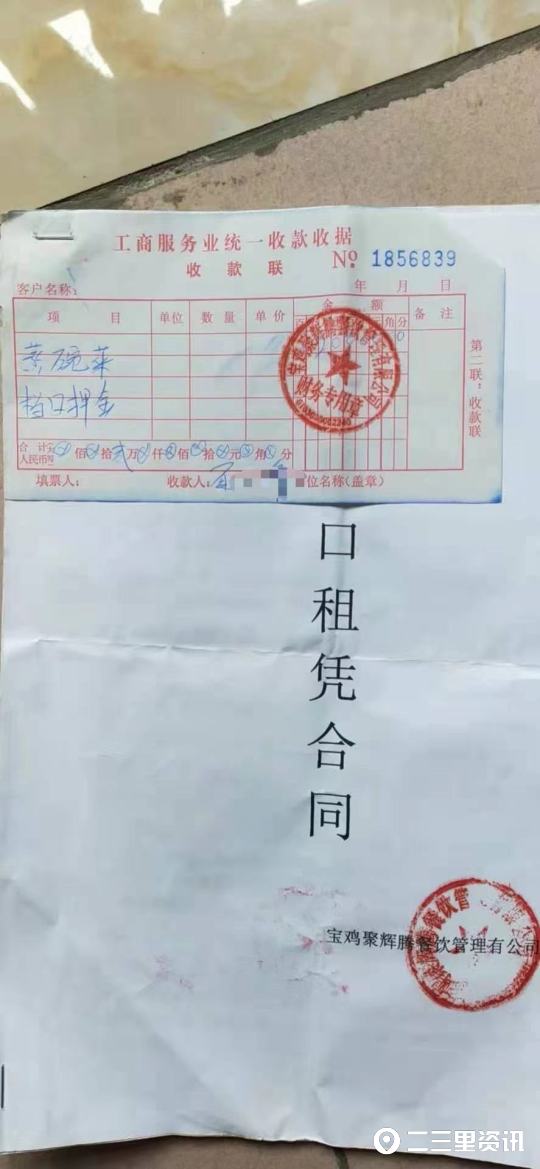 工商服务业统一收款收据
收款联 № 1856839
客户名称: 年 月 日
项目 单位 数量 单价 金额 备注
角 分
蒸碗菜
档口押金
第二联:收款联
财务专用章
合计 人民币 佰 拾 贰 万 仟 佰 拾 元 角 分
填票人: 收款人: 位名称(盖章)
口租凭合同
餐饮管
宝鸡聚辉腾餐饮管理有公司
二三里资讯